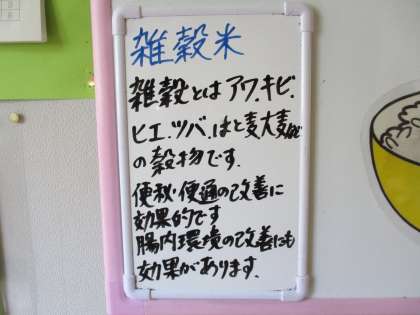 雑穀米
雑穀とは アワ.キビ.
ヒエ.ツバ.はと麦大麦など
の穀物です.
便秘・便通の改善に
効果的です
腸内環境の改善にも
効果があります.